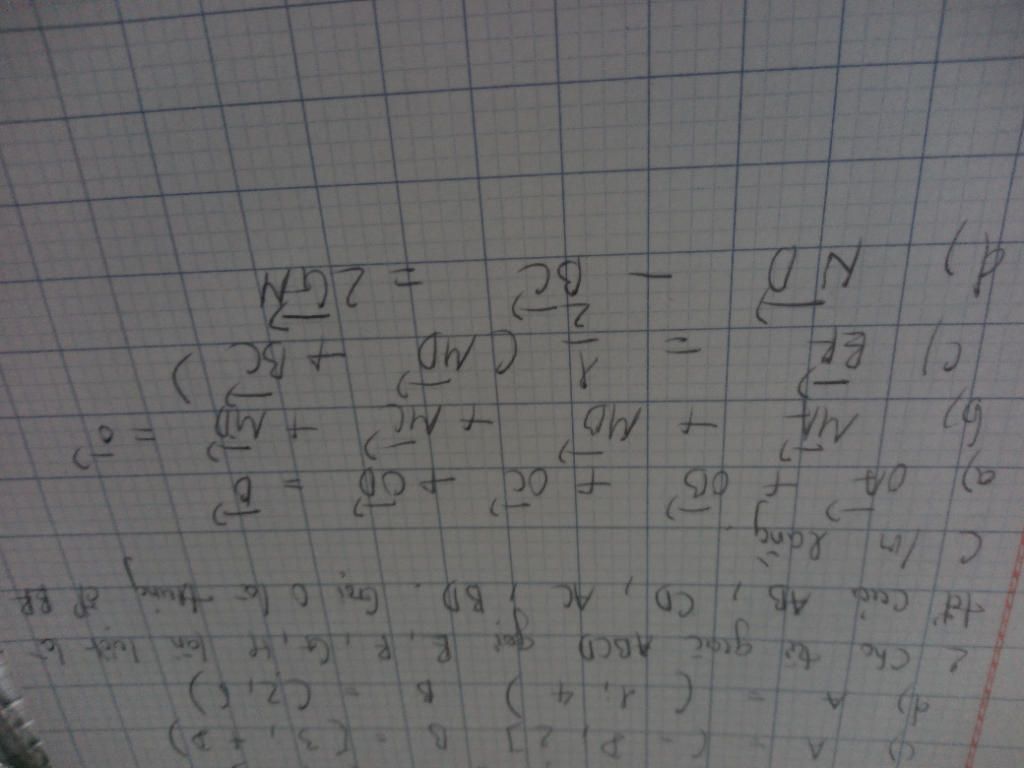 c) A = (-∞, 2] B = [3, +∞)
d) A = (1, 4) B = (2, 6)
2 Cho tứ giác ABCD gọi E, F, G, H lần lượt là
tđ của AB, CD, AC, BD. Gọi O là trung đ' EF
C/m rằng
a) OA + OB + OC + OD = 0
b) MA + MB + MC + MD = 0
c) EF = 1/2 (MD + BC)
d) ND - BC/2 = 2GN